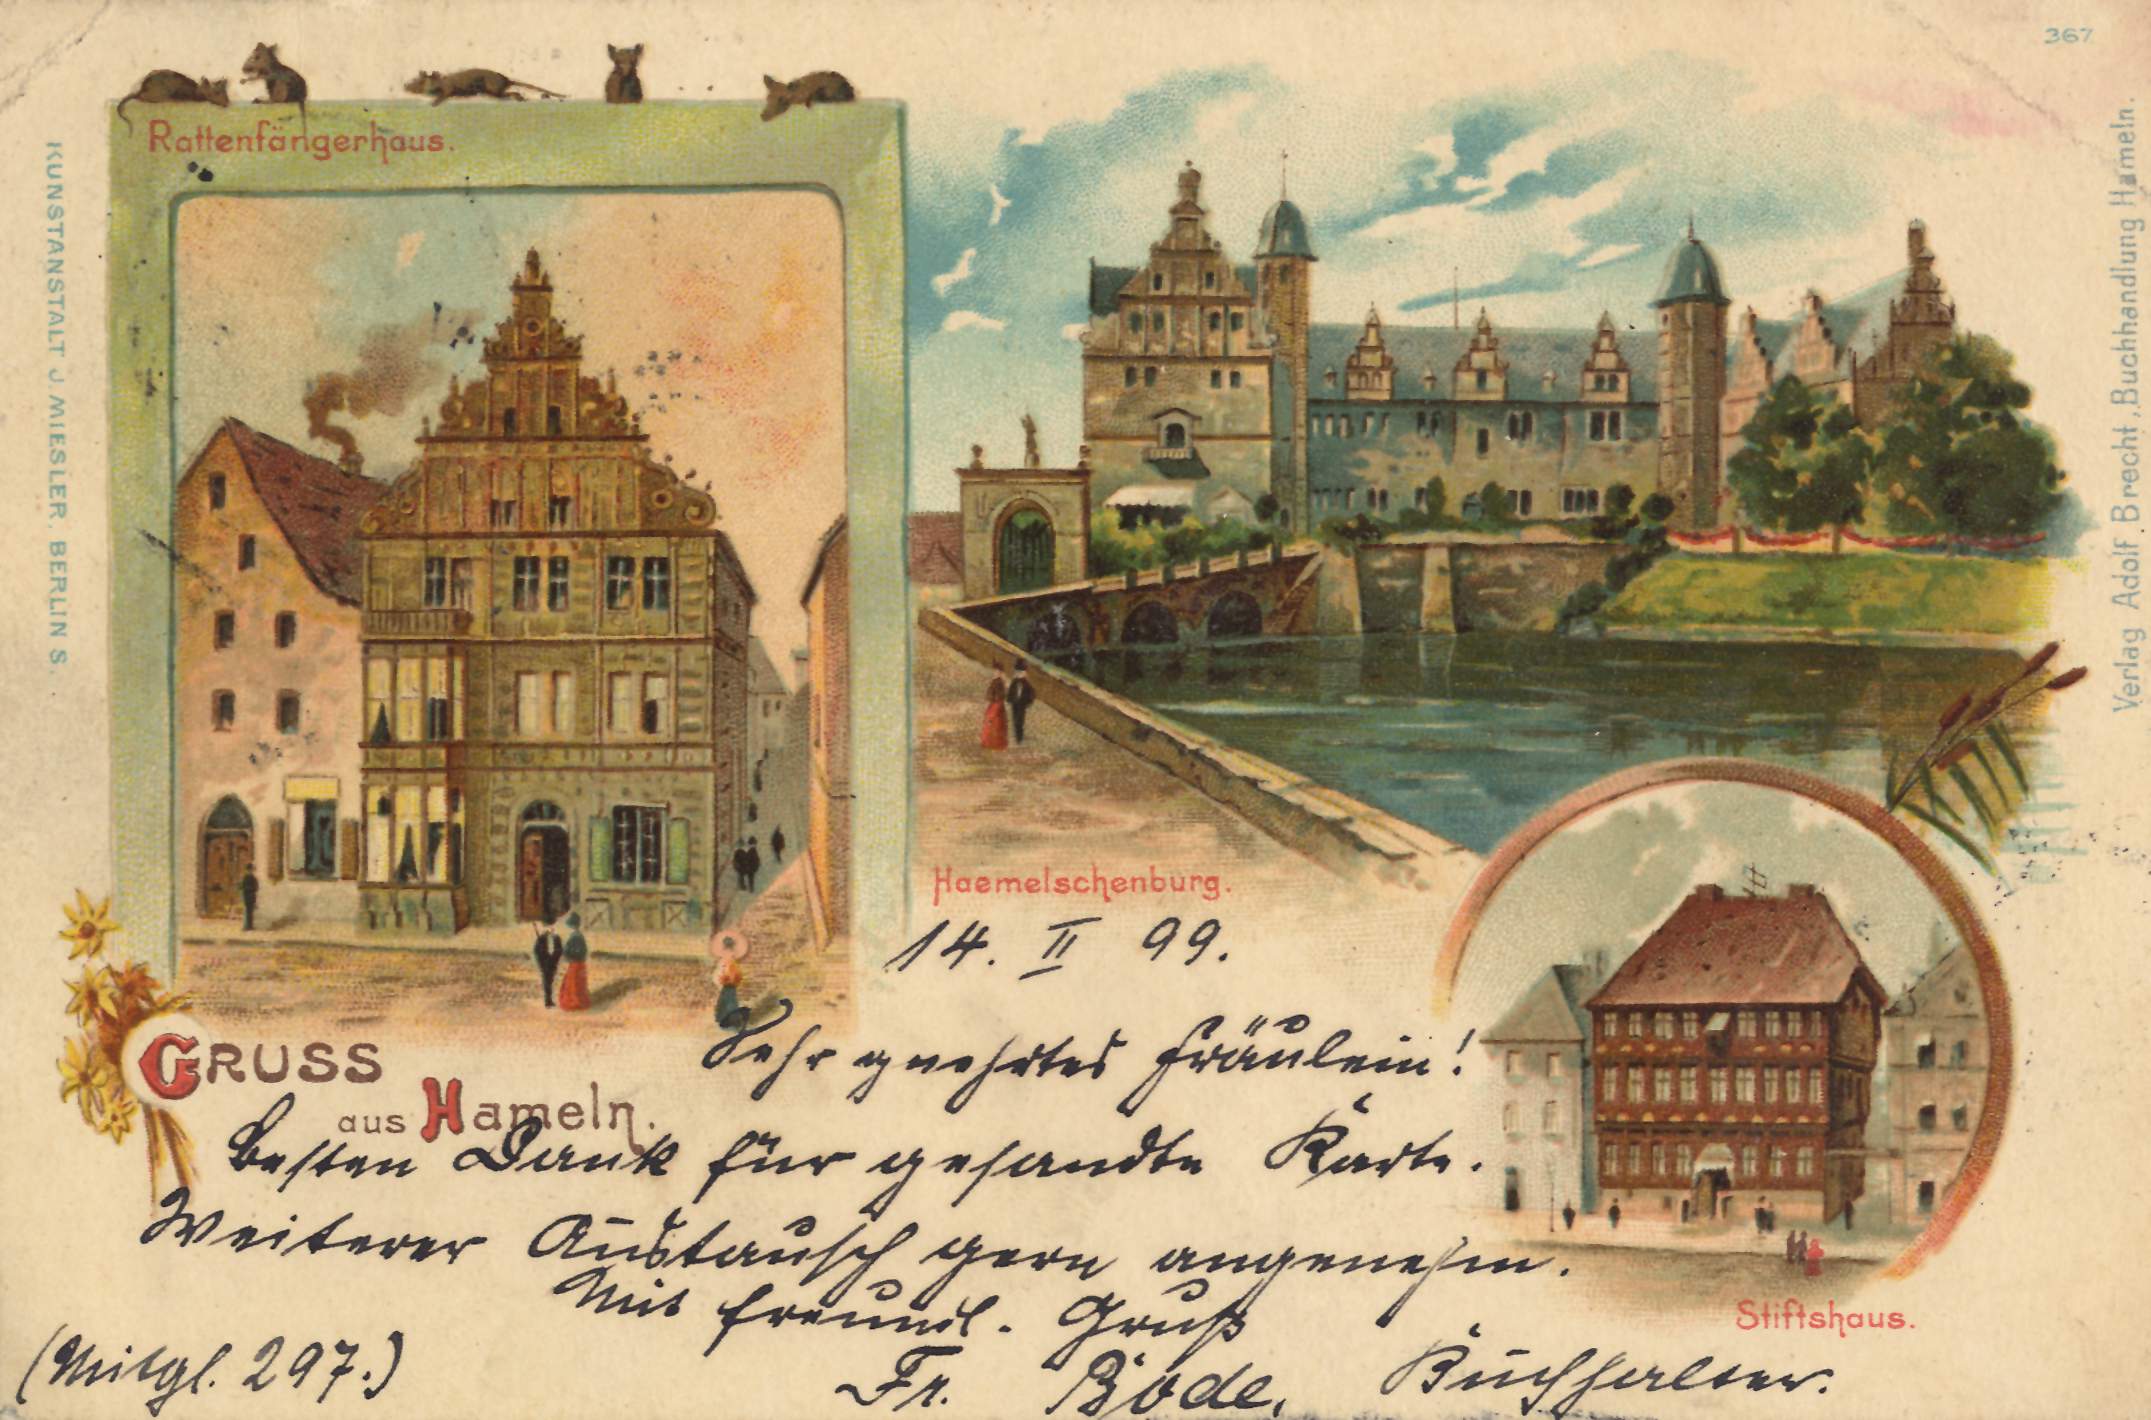 367
Rattenfängerhaus.
KUNSTANSTALT J. MIESLER, BERLIN S.
Verlag Adolf Brecht, Buchhandlung Hameln.
Haemelschenburg.
14. II 99.
GRUSS
aus Hameln.
Sehr geehrtes Fräulein!
Besten Dank für gesandte Karte.
Weiterer Austausch gern angenehm.
Mit freundl. Gruß
Stiftshaus.
(Mitgl. 297.)
Fr. Bode, Buchhalter.